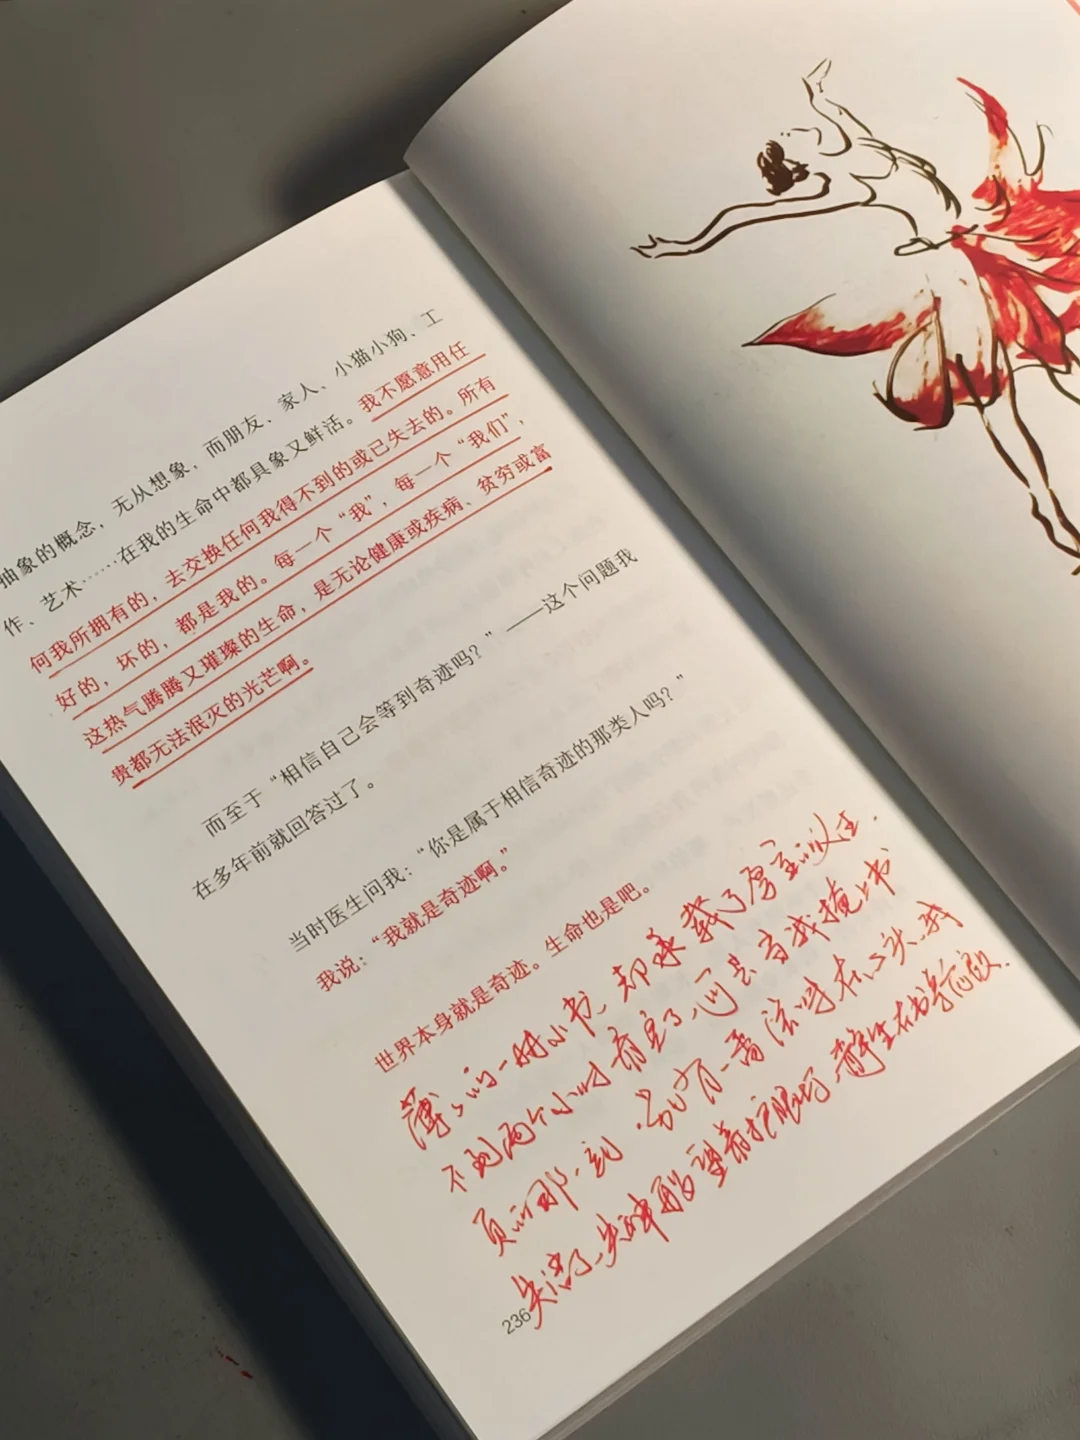 抽象的概念，无从想象，而朋友、家人、小猫小狗、工
作、艺术……在我的生命中都具象又鲜活。我不愿意用任
何我所拥有的，去交换任何我得不到的或已失去的。所有
好的，坏的，都是我的。每一个“我”，每一个“我们”，
这热气腾腾又璀璨的生命，是无论健康或疾病、贫穷或富
贵都无法泯灭的光芒啊。
而至于“相信自己会等到奇迹吗？”——这个问题我
在多年前就回答过了。
当时医生问我：“你是属于相信奇迹的那类人吗？”
我说：“我就是奇迹啊。”
世界本身就是奇迹。生命也是吧。
薄薄的一册小书，却承载了厚重的人生.
不到两个小时看完了，可是当我掩上书
页的那一刻，就有一番滋味在心头，我
失语了，失神般望着护眼灯，静坐在书桌前
236